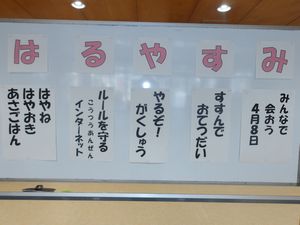 はるやすみ
はやね
はやおき
あさごはん
ルールを守る
こうつうあんぜん
インターネット
やるぞ！
がくしゅう
すすんで
おてつだい
みんなで
会おう
4月8日